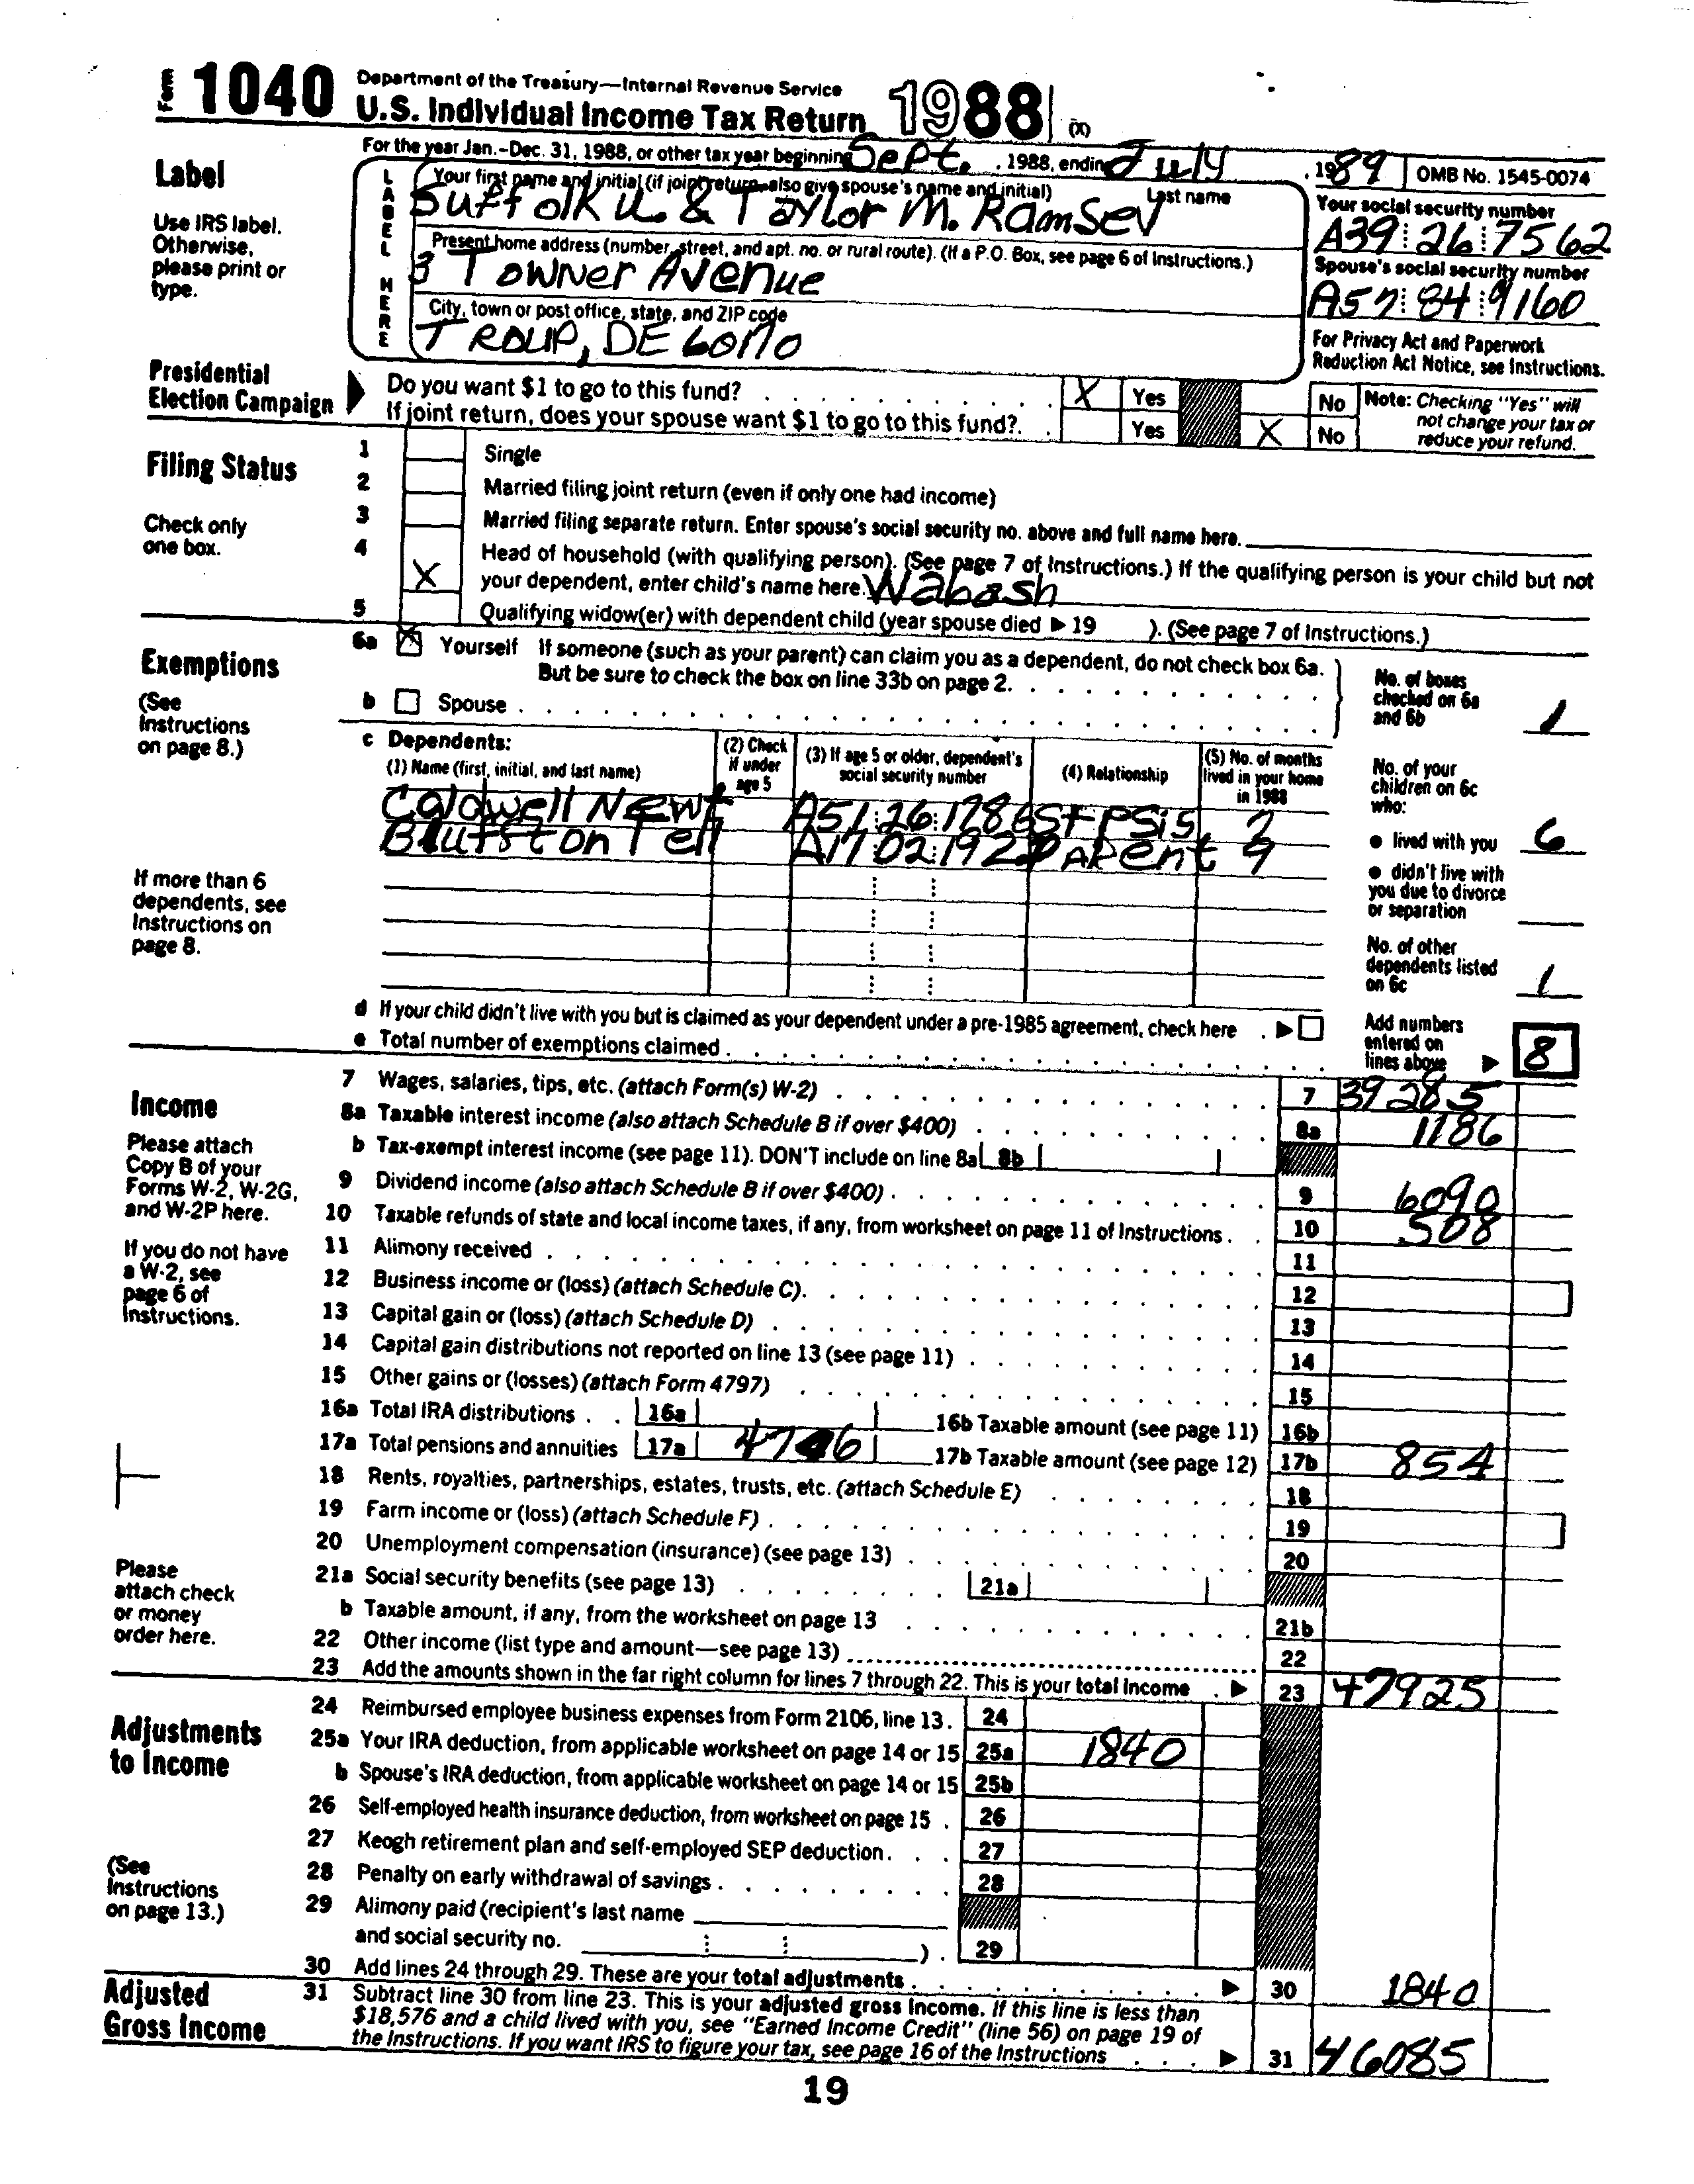 Form 1040 Department of the Treasury—Internal Revenue Service
U.S. Individual Income Tax Return 1988 (X)
For the year Jan.-Dec. 31, 1988, or other tax year beginning Sept. , 1988, ending July , 1989 OMB No. 1545-0074
Label
Use IRS label. Otherwise, please print or type.
LABEL HERE
Your first name and initial (if joint return, also give spouse's name and initial) Last name
Suffolk U. & Taylor M. Ramsey
Your social security number
A39 26 7562
Present home address (number, street, and apt. no. or rural route). (If a P.O. Box, see page 6 of Instructions.)
3 Towner Avenue
Spouse's social security number
A57 84 9160
City, town or post office, state, and ZIP code
Troup, DE
For Privacy Act and Paperwork Reduction Act Notice, see Instructions.
Presidential Election Campaign
Do you want $1 to go to this fund? X Yes No
If joint return, does your spouse want $1 to go to this fund? Yes X No
Note: Checking "Yes" will not change your tax or reduce your refund.
Filing Status
Check only one box.
1 Single
2 Married filing joint return (even if only one had income)
3 Married filing separate return. Enter spouse's social security no. above and full name here.
4 X Head of household (with qualifying person). (See page 7 of Instructions.) If the qualifying person is your child but not
your dependent, enter child's name here. Wabash
5 Qualifying widow(er) with dependent child (year spouse died ▶ 19 ). (See page 7 of Instructions.)
Exemptions
(See Instructions on page 8.)
6a X Yourself If someone (such as your parent) can claim you as a dependent, do not check box 6a.
But be sure to check the box on line 33b on page 2.
b Spouse
No. of boxes checked on 6a and 6b 1
c Dependents:
(1) Name (first, initial, and last name)
(2) Check if under age 5
(3) If age 5 or older, dependent's social security number
(4) Relationship
(5) No. of months lived in your home in 1988
Caldwell Newt A51 26 1786 Stpsis
Bluffston Tell A17 02 Parent
If more than 6 dependents, see Instructions on page 8.
No. of your children on 6c who:
● lived with you 6
● didn't live with you due to divorce or separation
No. of other dependents listed on 6c 1
d If your child didn't live with you but is claimed as your dependent under a pre-1985 agreement, check here ▶
e Total number of exemptions claimed
Add numbers entered on lines above ▶ 8
Income
Please attach Copy B of your Forms W-2, W-2G, and W-2P here.
If you do not have a W-2, see page 6 of Instructions.
Please attach check or money order here.
7 Wages, salaries, tips, etc. (attach Form(s) W-2) 7 39285
8a Taxable interest income (also attach Schedule B if over $400) 8a 1186
b Tax-exempt interest income (see page 11). DON'T include on line 8a 8b
9 Dividend income (also attach Schedule B if over $400) 9 6090
10 Taxable refunds of state and local income taxes, if any, from worksheet on page 11 of Instructions. 10 508
11 Alimony received 11
12 Business income or (loss) (attach Schedule C). 12
13 Capital gain or (loss) (attach Schedule D) 13
14 Capital gain distributions not reported on line 13 (see page 11) 14
15 Other gains or (losses) (attach Form 4797) 15
16a Total IRA distributions 16a 16b Taxable amount (see page 11) 16b
17a Total pensions and annuities 17a 17b Taxable amount (see page 12) 17b 854
18 Rents, royalties, partnerships, estates, trusts, etc. (attach Schedule E) 18
19 Farm income or (loss) (attach Schedule F) 19
20 Unemployment compensation (insurance) (see page 13) 20
21a Social security benefits (see page 13) 21a
b Taxable amount, if any, from the worksheet on page 13 21b
22 Other income (list type and amount—see page 13) 22
23 Add the amounts shown in the far right column for lines 7 through 22. This is your total income ▶ 23 47925
Adjustments to Income
(See Instructions on page 13.)
24 Reimbursed employee business expenses from Form 2106, line 13. 24
25a Your IRA deduction, from applicable worksheet on page 14 or 15 25a 1840
b Spouse's IRA deduction, from applicable worksheet on page 14 or 15 25b
26 Self-employed health insurance deduction, from worksheet on page 15 26
27 Keogh retirement plan and self-employed SEP deduction 27
28 Penalty on early withdrawal of savings 28
29 Alimony paid (recipient's last name
and social security no. ) 29
30 Add lines 24 through 29. These are your total adjustments ▶ 30 1840
Adjusted Gross Income
31 Subtract line 30 from line 23. This is your adjusted gross income. If this line is less than
$18,576 and a child lived with you, see "Earned Income Credit" (line 56) on page 19 of
the Instructions. If you want IRS to figure your tax, see page 16 of the Instructions ▶ 31 46085
19